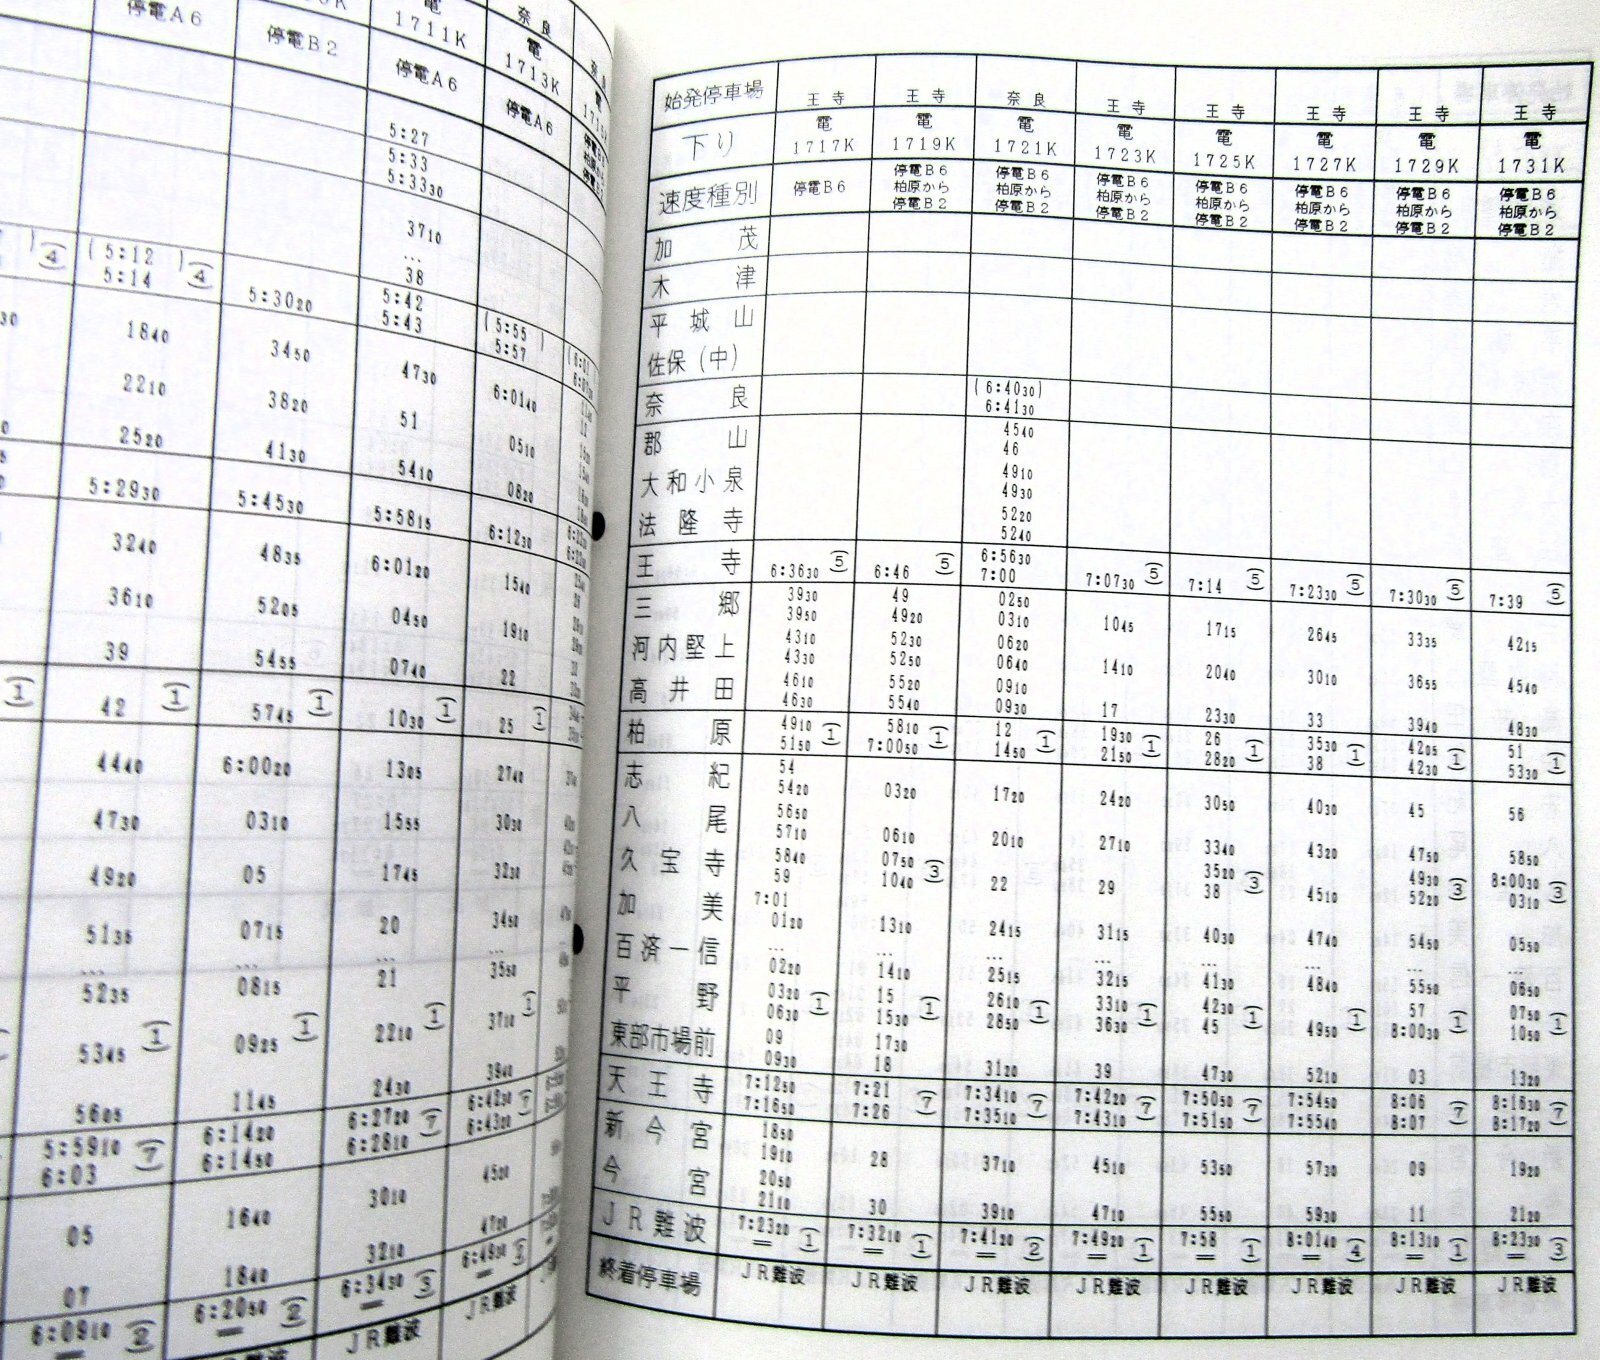 停電A6
停電B2
1711K
停電A6
奈良
電
1713K
停電A6
5:27
5:33
5:3330
3710
…
38
(5:12) ④
5:14
5:3020
5:42
5:43
(5:55)
5:57
1840
3450
4730
6:0140
2210
3820
51
0510
2520
4130
5410
0820
5:2930
5:4530
5:5815
6:1230
3240
4835
6:0120
1540
3610
5205
0450
1910
39
5455
0740
22
① 42 ①
5745 ①
1030 ①
25 ①
4440
6:0020
1305
2740
4730
0310
1555
3030
4920
05
1745
3230
5135
0715
20
3450
…
5235
0815
21
3550
5345 ①
0925 ①
2210 ①
3710 ①
5605
1145
2430
3940
5:5910 ⑦
6:03
6:1420
6:1450
6:2720 ⑦
6:2810
6:4230 ⑦
6:4320
05
1640
3010
4520
07
1840
3210
4720
6:0910 ②
6:2050 ②
6:3430 ③
6:4930
JR難波
JR難波
始発停車場 王寺 王寺 奈良 王寺 王寺 王寺 王寺 王寺
下り 電 電 電 電 電 電 電 電
1717K 1719K 1721K 1723K 1725K 1727K 1729K 1731K
速度種別 停電B6 停電B6 停電B6 停電B6 停電B6 停電B6 停電B6 停電B6
柏原から 柏原から 柏原から 柏原から 柏原から 柏原から 柏原から
停電B2 停電B2 停電B2 停電B2 停電B2 停電B2 停電B2
加茂
木津
平城山
佐保(中)
奈良 (6:4030)
6:4130
郡山 4540
46
大和小泉 4910
4930
法隆寺 5220
5240
王寺 6:5630
6:3630 ⑤ 6:46 ⑤ 7:00 7:0730 ⑤ 7:14 ⑤ 7:2330 ⑤ 7:3030 ⑤ 7:39 ⑤
三郷 3930 49 0250
3950 4920 0310 1045 1715 2645 3335 4215
河内堅上 4310 5230 0620
4330 5250 0640 1410 2040 3010 3655 4540
高井田 4610 5520 0910
4630 5540 0930 17 2330 33 3940 4830
柏原 4910 ① 5810 ① 12 ① 1930 ① 26 ① 3530 ① 4205 ① 51 ①
5150 7:0050 1450 2150 2820 38 4230 5330
志紀 54
5420 0320 1720 2420 3050 4030 45 56
八尾 5650
5710 0610 2010 2710 3340 4320 4750 5850
久宝寺 5840 0750 ③ 3520 ③ 4930 ③ 8:0030 ③
59 1040 22 29 38 4510 5220 0310
加美 7:01
0120 1310 2415 3115 4030 4740 5450 0550
百済一信 … … … … … … … …
0220 1410 2515 3215 4130 4840 5550 0650
平野 0320 ① 15 ① 2610 ① 3310 ① 4230 ① 57 ① 0750 ①
0630 1530 2850 3630 45 4950 ① 8:0030 1050
東部市場前 09 1730
0930 18 3120 39 4730 5210 03 1320
天王寺 7:1250 7:21 ⑦ 7:3410 ⑦ 7:4220 ⑦ 7:5050 ⑦ 7:5450 8:06 ⑦ 8:1630 ⑦
7:1650 7:26 7:3510 7:4310 7:5150 7:5540 8:07 8:1720
新今宮 1850
1910 28 3710 4510 5350 5730 09 1920
今宮 2050
2110 30 3910 4710 5550 5930 11 2120
JR難波 7:2320 ① 7:3210 ① 7:4120 ② 7:4920 ① 7:58 ① 8:0140 ④ 8:1310 ① 8:2330 ③
終着停車場 JR難波 JR難波 JR難波 JR難波 JR難波 JR難波 JR難波 JR難波